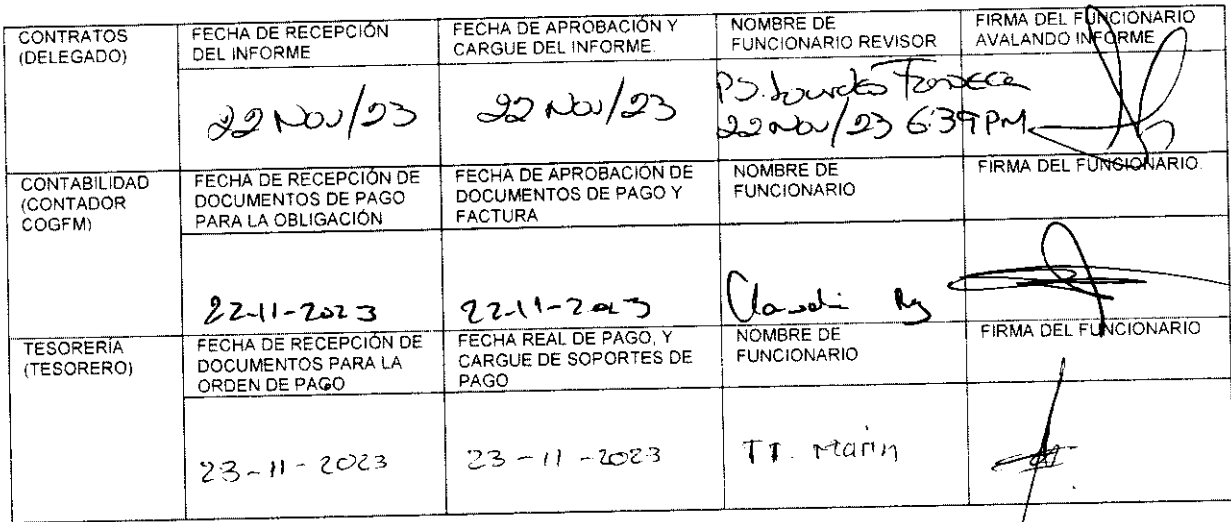 CONTRATOS
(DELEGADO)
FECHA DE RECEPCIÓN
DEL INFORME
FECHA DE APROBACIÓN Y
CARGUE DEL INFORME.
NOMBRE DE
FUNCIONARIO REVISOR
FIRMA DEL FUNCIONARIO
AVALANDO INFORME
22 Nov/23
22 Nov/23
PS. Lourdes Fonseca
22 nov/23 6:39 PM
CONTABILIDAD
(CONTADOR
COGFM)
FECHA DE RECEPCIÓN DE
DOCUMENTOS DE PAGO
PARA LA OBLIGACIÓN
FECHA DE APROBACIÓN DE
DOCUMENTOS DE PAGO Y
FACTURA
NOMBRE DE
FUNCIONARIO
FIRMA DEL FUNCIONARIO.
22-11-2023
22-11-2023
Claudia
TESORERIA
(TESORERO)
FECHA DE RECEPCIÓN DE
DOCUMENTOS PARA LA
ORDEN DE PAGO
FECHA REAL DE PAGO, Y
CARGUE DE SOPORTES DE
PAGO
NOMBRE DE
FUNCIONARIO
FIRMA DEL FUNCIONARIO
23-11-2023
23-11-2023
TT. Marin